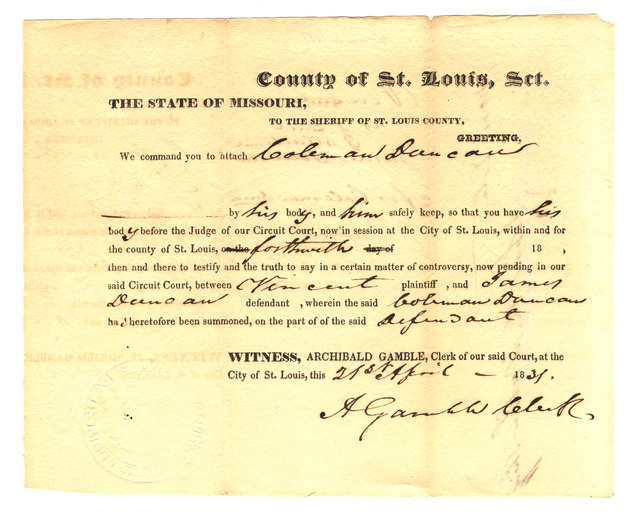 County of St. Louis, Sct.
THE STATE OF MISSOURI,
TO THE SHERIFF OF ST. LOUIS COUNTY,
GREETING,
We command you to attach Coleman Duncan
by his body, and him safely keep, so that you have his
body before the Judge of our Circuit Court, now in session at the City of St. Louis, within and for
the county of St. Louis, on the forthwith day of 18 ,
then and there to testify and the truth to say in a certain matter of controversy, now pending in our
said Circuit Court, between Vincent plaintiff , and James
Duncan defendant , wherein the said Coleman Duncan
has heretofore been summoned, on the part of of the said Defendant
WITNESS, ARCHIBALD GAMBLE, Clerk of our said Court, at the
City of St. Louis, this 21st April – 1831.
A Gamble Clerk